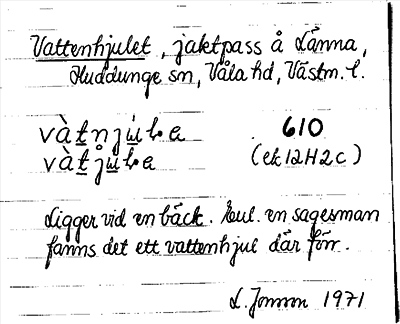 Vattenhjulet, jaktpass å Länna,
Huddunge sn, Våla hd, Västm. l.
vàtnjúɫea 610
vàtjúɫea (ek 12H2c)
Ligger vid en bäck. Enl. en sagesman
fanns det ett vattenhjul där förr.
L. Jonson 1971